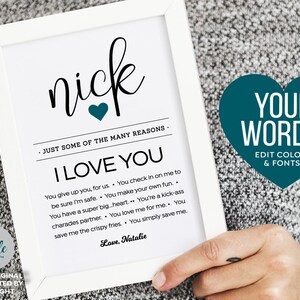 nick
· JUST SOME OF THE MANY REASONS ·
I LOVE YOU
You give up you, for us. • You check in on me to
be sure I'm safe. • You make your own fun. •
You have a super big...heart. •• You're a kick-ass
charades partner. • You love me for me. • You
save me the crispy fries. • You simply save me.
Love, Natalie
YOUR
WORDS
EDIT COLO
& FONTS